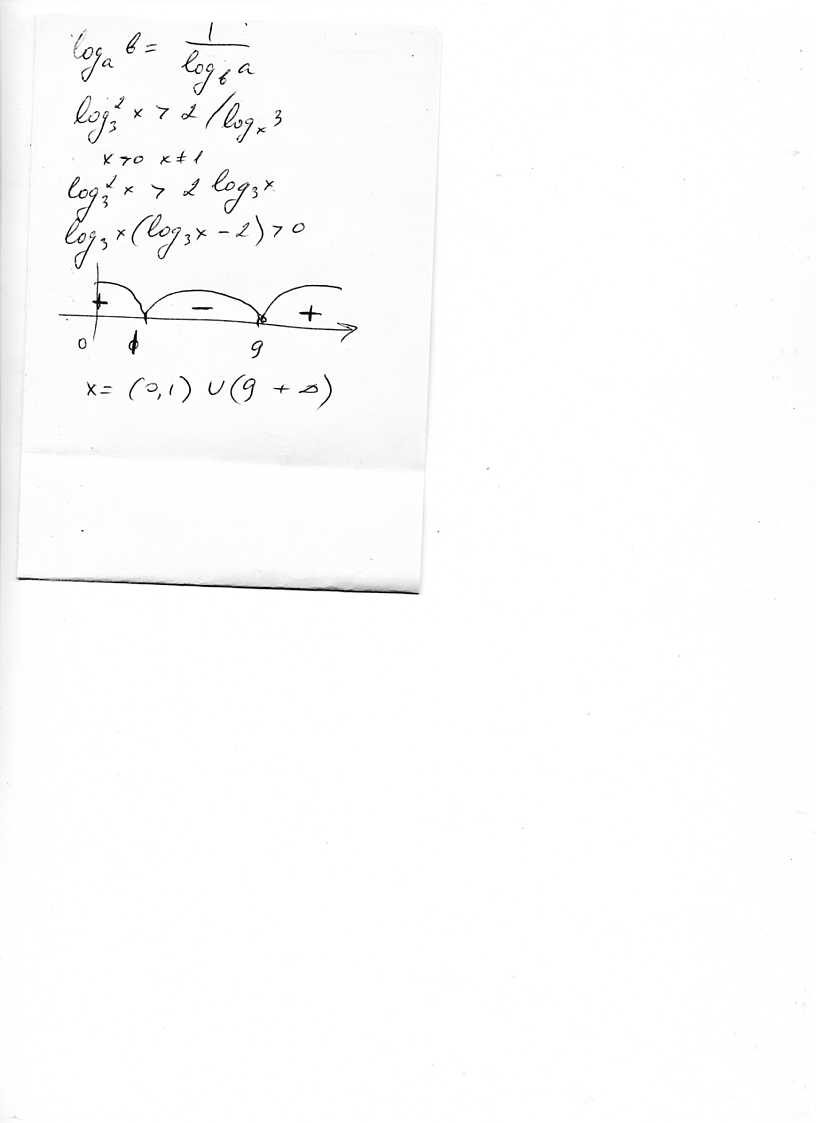 logₐ b = 1 / log_b a
log₃² x > 2 / logₓ 3
x > 0 x ≠ 1
log₃² x > 2 log₃ x
log₃ x (log₃ x - 2) > 0
+ − +
0 1 9
x = (0, 1) ∪ (9 + ∞)